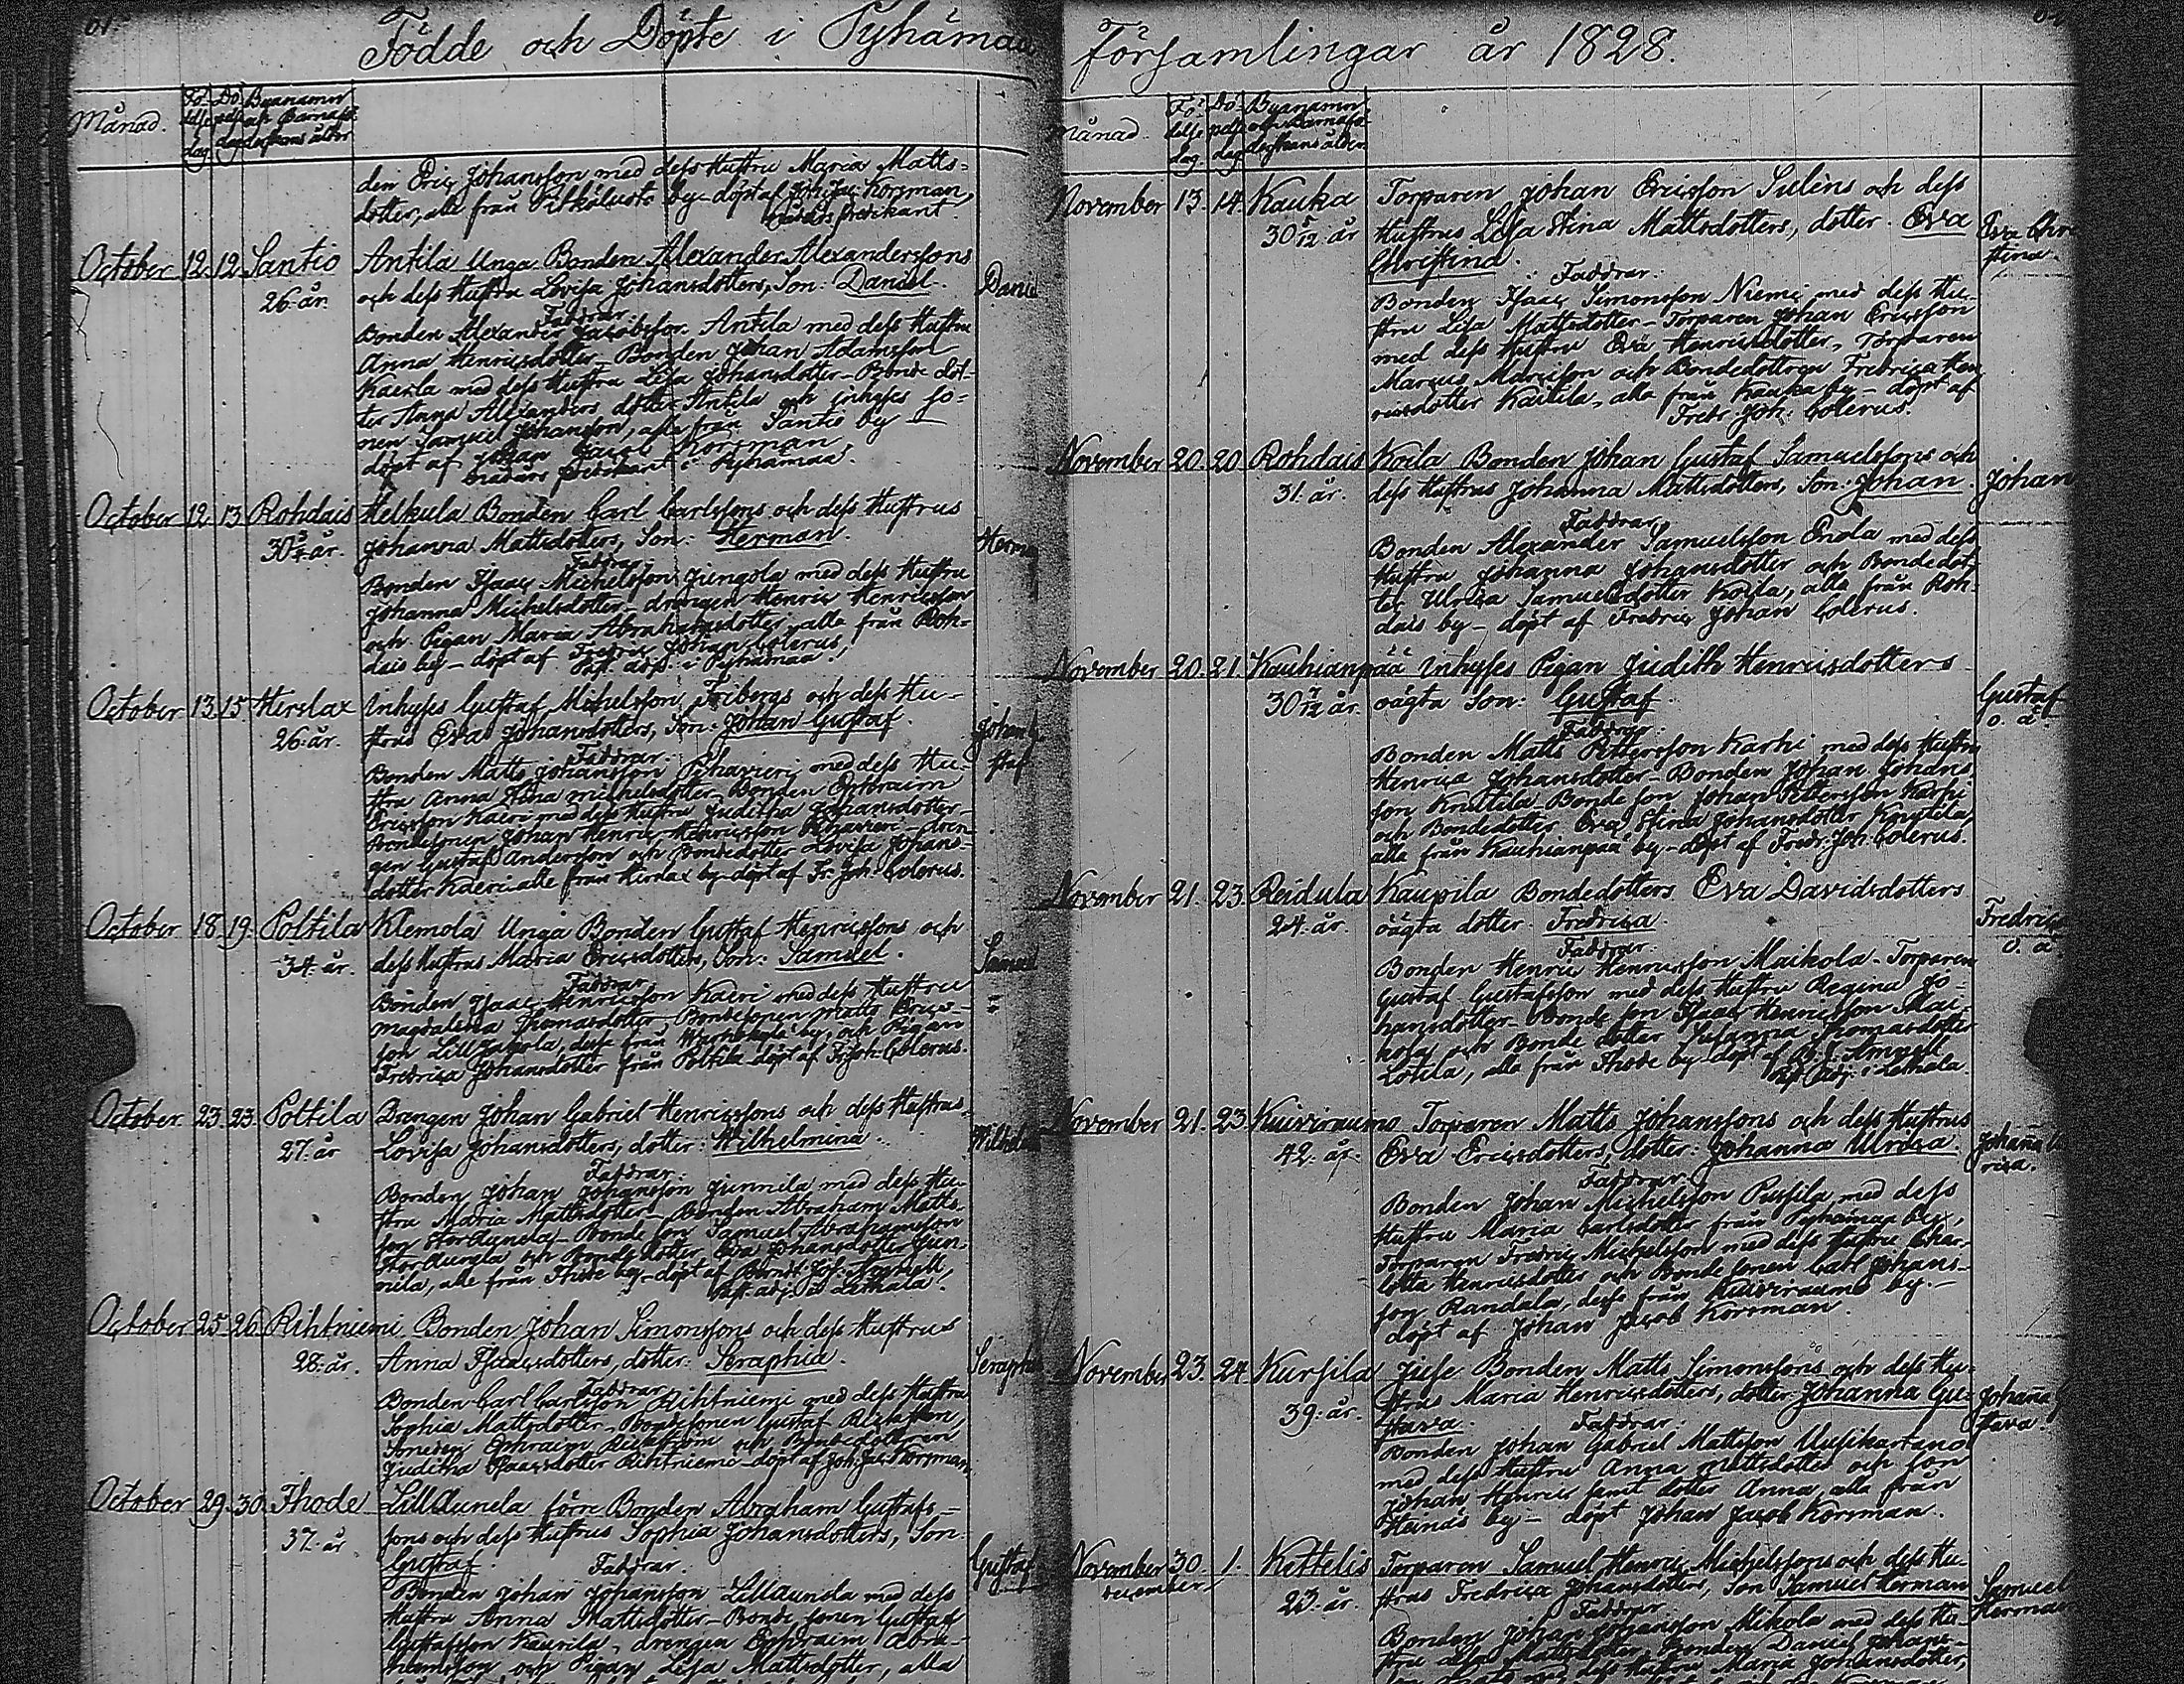 61.
Födde och Döpte i Pyhämaa
Månad. Fö-delse dag Dö-pelse dag Byanamn och Barnaföderskans ålder
den Eric Johansson med dess Hustru Maria Matts-
dotter, alla från by döpt af Joh: Jac: Korsman,
Predikant.
October 12. 12. Santio Antila Unga Bonden Alexander Alexanderssons
26. år. och dess Hustru Lovisa Johansdotters, Son: Daniel. Daniel
Faddrar.
Bonden Alexander Jacobsson Antila med dess Hustru
Anna Henricsdotter – Bonden Johan Adamsson
Kaerla med dess Hustru Lisa Johansdotter – Bonde dot-
ter Anna Alexanders dotter Antila och inhyses so-
nen Samuel Johansson, alla från Santio by –
döpt af Johan Jacob Korsman,
Predikant i Pyhämaa.
October 12. 13. Rohdais Helkula Bonden Carl Carlssons och dess Hustrus
30 år. Johanna Mattsdotters, Son: Herman. Herma
Faddrar.
Bonden Isaac Michelsson Jungola med dess Hustru
Johanna Michelsdotter – drengen Henric Henricsson
och Pigan Maria Abrahamsdotter, alla från Roh-
dais by – döpt af Fredric Johan Colerus,
adj: i Pyhämaa.
October 13. 15. Herslax Inhyses Gustaf Michelsson Fribergs och dess Hu-
26. år. strus Eva Johansdotters, Son: Johan Gustaf. Johan G
staf
Faddrar.
Bonden Matts Johansson Pihavieri med dess Hu-
stru Anna Stina Michelsdotter – Bonden Ephraim
Ericsson Kaeri med dess Hustru Juditha Johansdotter –
Bondesonen Johan Henric Henricsson Pihavieri – dren-
gen Gustaf Andersson och Bondedotter Lovisa Johans-
dotter Kaeri alla från Herslax by – döpt af Fr: Joh: Colerus.
October 18. 19. Poltila Klemola Unga Bonden Gustaf Henricssons och
34. år. dess Hustrus Maria Ericsdotters, Son: Samuel. Samuel
Faddrar.
Bonden Isaac Henricsson Kaeri med dess Hustru
Magdalena Thomasdotter – Bondesonen Matts Erics-
son Lill dessa från by, och Pigan
Fredrica Johansdotter från Poltila – döpt af Fr: Joh: Colerus.
October 23. 23. Poltila Drengen Johan Gabriel Henricssons och dess Hustrus
27. år Lovisa Johansdotters, dotter: Wilhelmina. Wilhelm
Faddrar.
Bonden Johan Johansson Junnila med dess Hu-
stru Maria Mattsdotter – Bonden Abraham Matts-
son StorAunela – Bonde son Samuel Abrahamsson
StorAunela och Bonde dotter Eva Johansdotter Jun-
nila, alla från Ihode by – döpt af Berndt Joh:
adj: i Lethala.
October 25. 26. Rihtniemi Bonden Johan Simonssons och dess Hustrus
28. år. Anna Isaacsdotters, dotter: Seraphia. Seraph
Faddrar
Bonden Carl Carlsson Rihtniemi med dess Hustru
Sophia Mattsdotter – Bondesonen Gustaf
Ephraim och Bondedotteren
Juditha Isaacsdotter Rihtniemi – döpt af Joh: Jac: Korsman.
October 29. 30. Ihode LillAunela förre Bonden Abraham Gustafs-
37. år sons och dess Hustrus Sophia Johansdotters, Son
Gustaf Faddrar. Gustaf
Bonden Johan Johansson LillAunela med dess
Hustru Anna Mattsdotter – Bonde sonen Gustaf
Gustafsson Kaurila, drengen Ephraim Abra-
hamsson och Pigan Lisa Mattsdotter, alla
Församlingar år 1828.
Månad. Fö-delse dag Dö-pelse dag Byanamn och Barnaföderskans ålder
November 13. 14. Kauka Torparen Johan Ericsson Sulins och dess
30 5/12 år Hustrus Lisa Stina Mattsdotters, dotter. Eva Eva Chri
Christina. stina.
Faddrar.
Bonden Isaac Simonsson Niemi med dess Hu-
stru Lisa Mattsdotter – Torparen Johan Ericsson
med dess Hustru Eva Henricsdotter, Torparen
Marcus Marcisson och Bondedottren Fredrica Hen-
ricsdotter Kaitila, alla från Kauka by – döpt af
Fredr: Joh: Colerus.
November 20. 20 Rohdais Koila Bonden Johan Gustaf Samuelssons och
31. år. dess Hustrus Johanna Mattsdotters, Son: Johan. Johan
Faddrar.
Bonden Alexander Samuelsson Enola med dess
Hustru Johanna Johansdotter och Bondedot-
ter Ulrica Samuelsdotter Koila, alla från Roh-
dais by – döpt af Fredric Johan Colerus.
November 20. 21. Kauhianpää Inhyses Pigan Judith Henricsdotters
30 7/12 år. oägta Son: Gustaf Gustaf
o. ä
Faddrar.
Bonden Matts Pettersson Karhi med dess Hustru
Henrica Johansdotter – Bonden Johan Johans-
son Knuttila Bonde son Johan Pettersson Karhi
och Bondedotter Eva Stina Johansdotter Knuttila,
alla från Kauhianpää by – döpt af Fredr: Joh: Colerus.
November 21. 23. Reidula Kaupila Bondedotters Eva Davidsdotters
24. år. oägta dotter. Fredrica Fredrica
o. ä
Faddrar.
Bonden Henric Henricsson Maikola – Torparen
Gustaf Gustafsson med dess Hustru Regina Jo-
hansdotter – Bonde son Isaac Henricsson Mai-
kola och Bonde dotter Susanna Thomasdotter
Lotila, alla från Ihode by – döpt af B. J.
Adj: i Lethala
November 21. 23. Kuiviraumo Torparen Matts Johanssons och dess Hustrus
42. år. Eva Ericsdotters, dotter: Johanna Ulrica. Johanna U
rica.
Faddrar.
Bonden Johan Michelsson Pursila med dess
Hustru Maria Carlsdotter från Pyhämaa by,
Torparen Fredric Michelsson med dess Hustru Char-
lotta Henricsdotter och Bonde sonen Carl Johans-
son Randala, dessa från Kuiviraumo by. –
döpt af Johan Jacob Korsman.
November 23. 24. Kursila Jiese Bonden Matts Simonssons och dess Hu-
39. år. strus Maria Henricsdotters, dotter Johanna Gu- Johanna G
stava. Faddrar. stava.
Bonden Johan Gabriel Mattsson Uusikartano
med dess Hustru Anna Mattsdotter och son
Johan Henric samt dotter Anna, alla från
Heinäs by – döpt Johan Jacob Korsman.
November 30 1. Kettelis Torparen Samuel Henric Michelssons och dess Hu-
december 23. år. strus Fredrica Johansdotters, Son Samuel Herman Samuel
Herman
Faddrar
Bonden Johan Johansson Mikola med dess Hu-
stru Mattsdotter, Bonden Daniel Johans-
son med dess Hustru Maria Johansdotter,